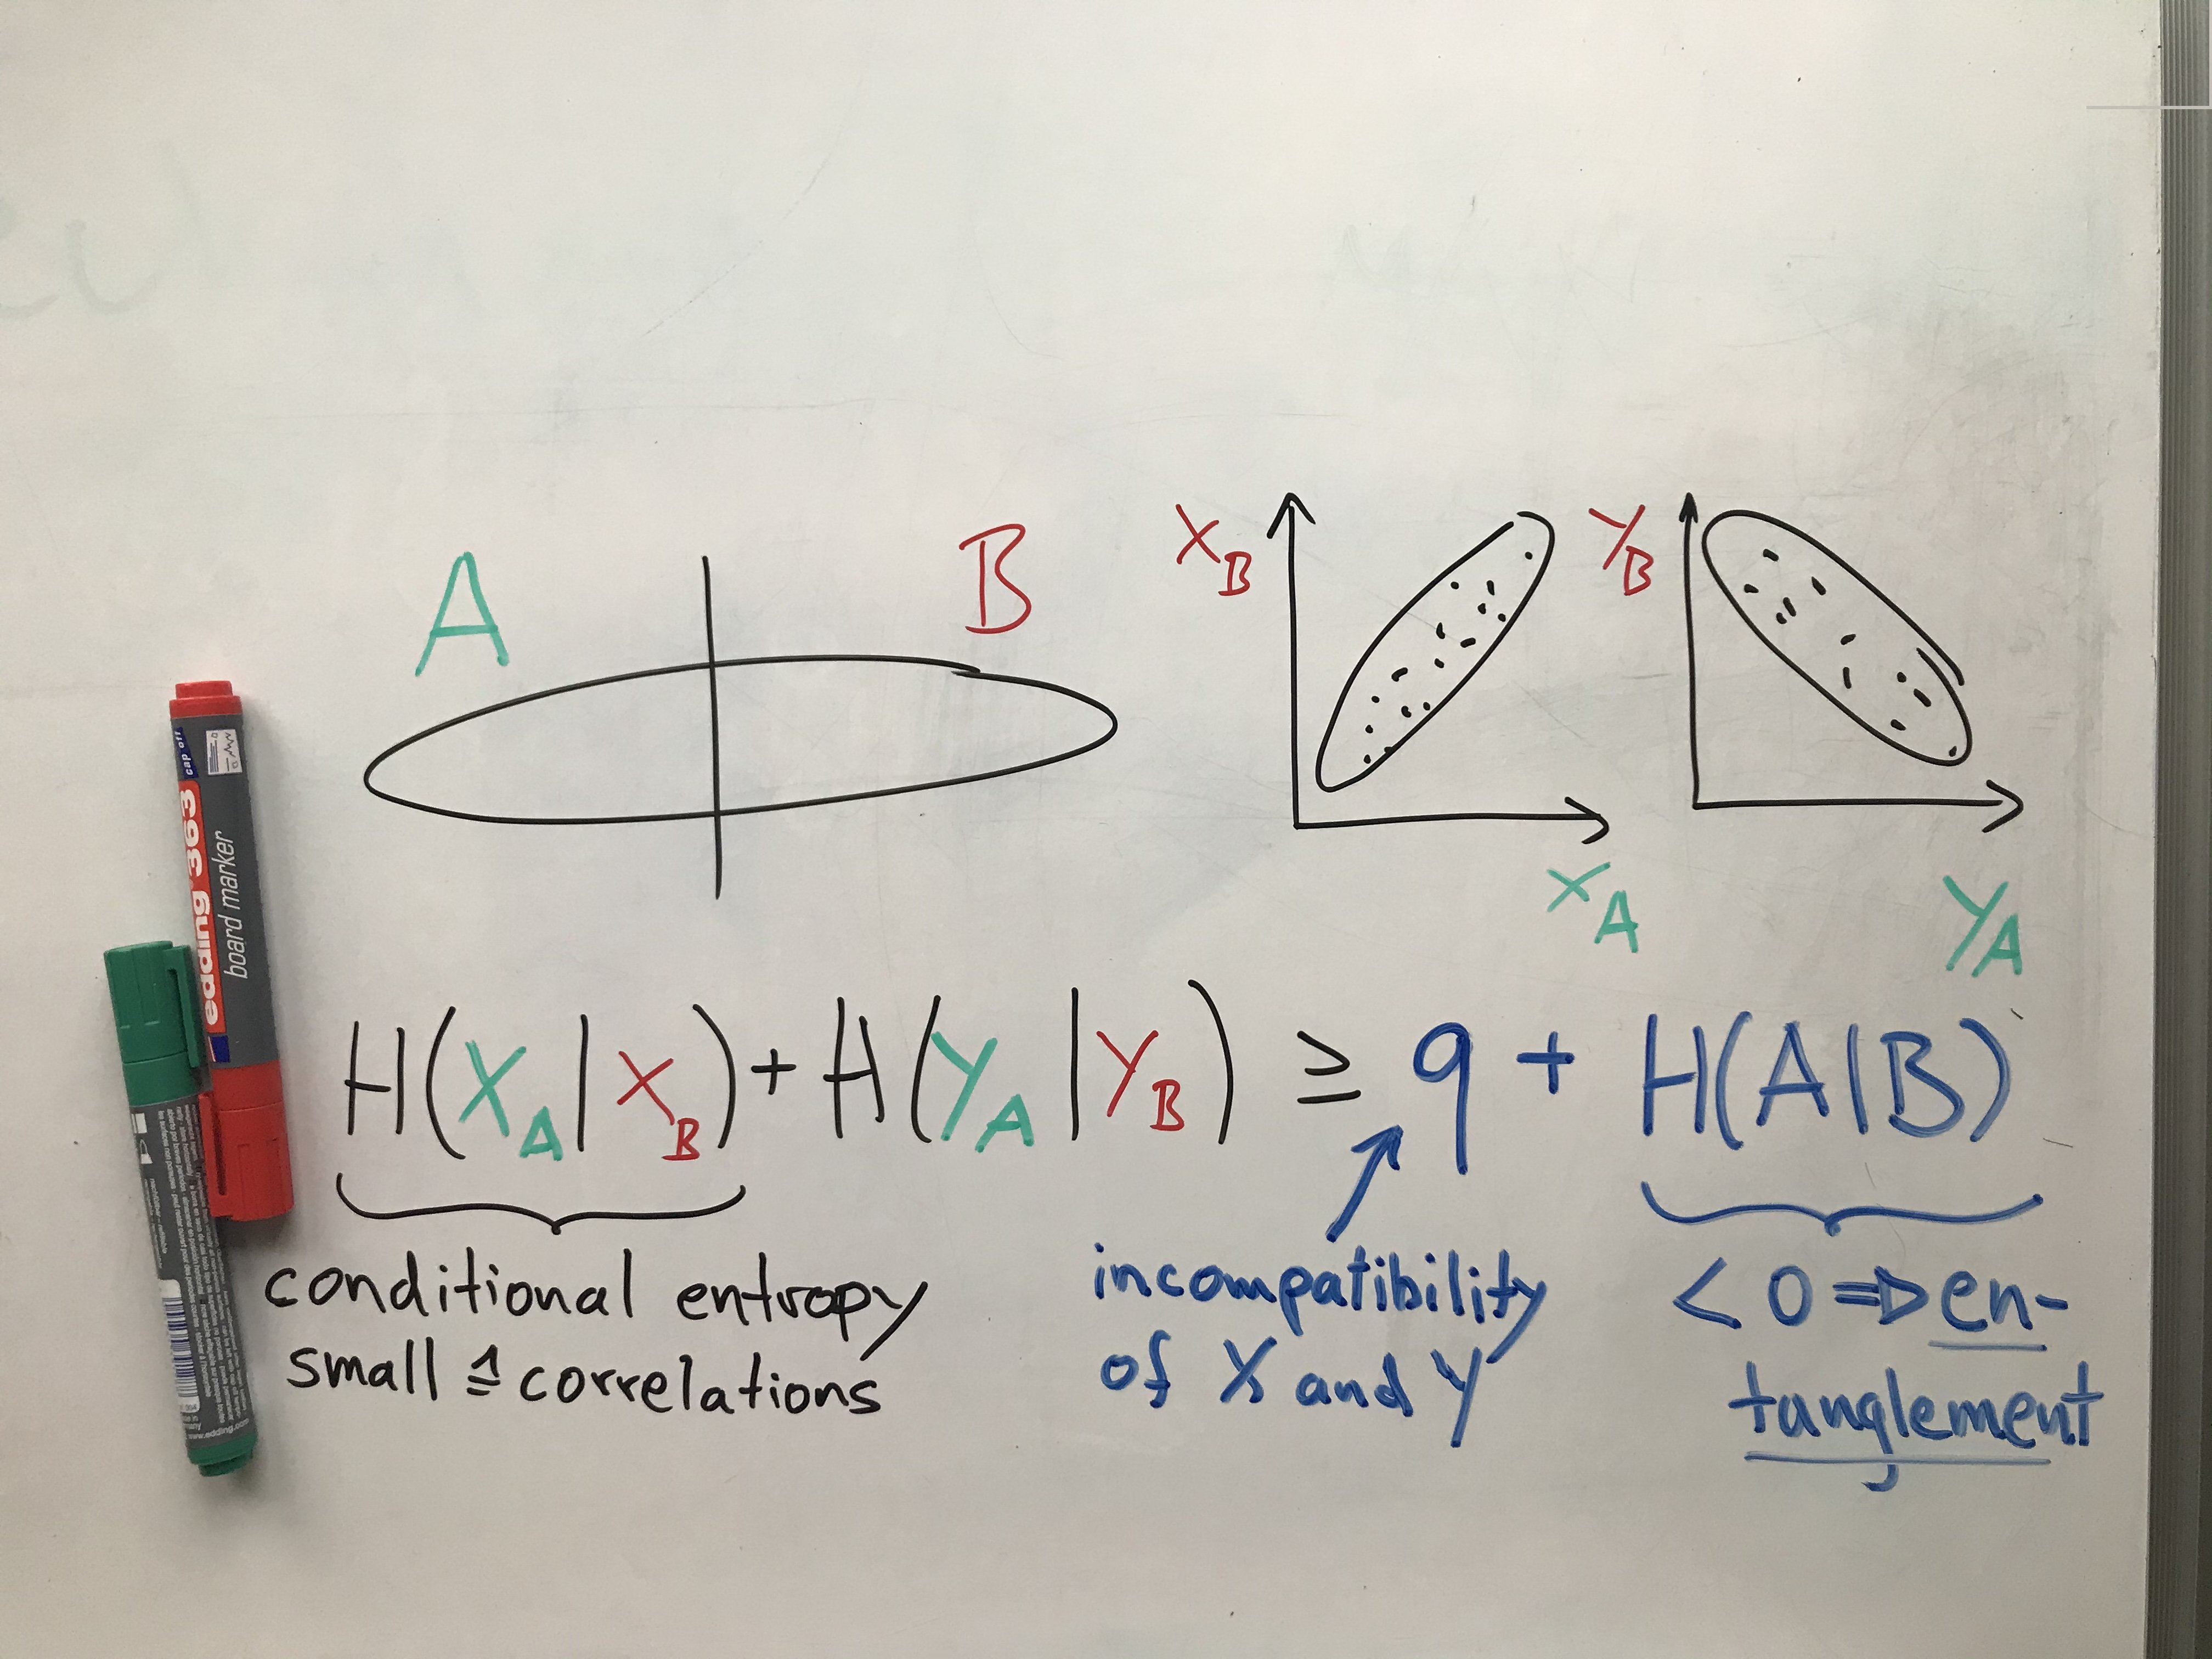 A
B
X_B
X_A
Y_B
Y_A
H(X_A|X_B) + H(Y_A|Y_B) ≥ q + H(A|B)
conditional entropy
small ≙ correlations
incompatibility
of X and Y
< 0 ⇒ en-
tanglement
edding 363
board marker
cap off
www.edding.com